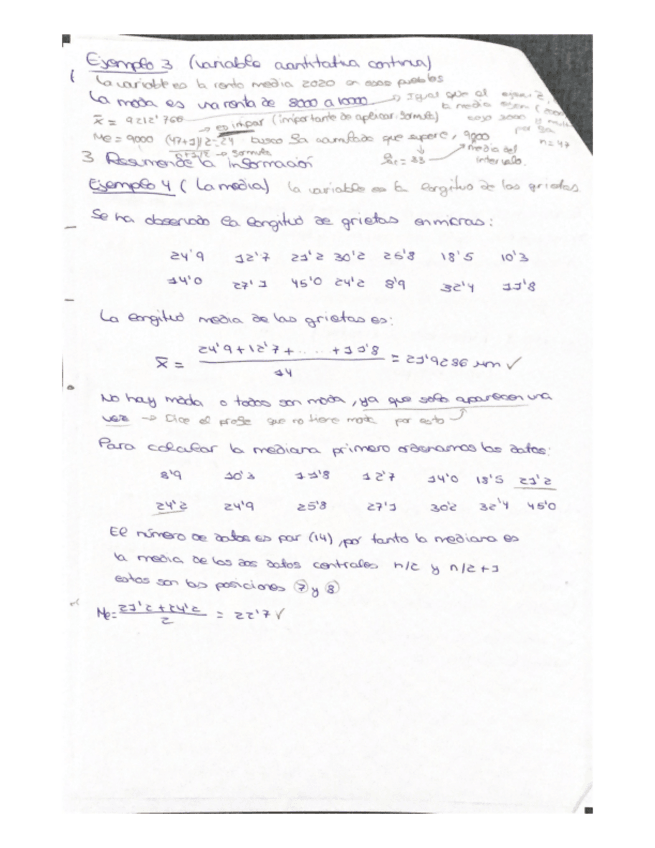 Ejemplo 3 (variable cuantitativa continua)
La variable es la renta media 2020 en 0000 pueblos
La moda es una renta de 8000 a 10000 → Igual que el
x̄ = 9212'766 → es impar (importante de aplicar formula)
Me = 9000 (47+1)/2=24 busco la acumulado que supere, 9000
n+1/2 → formula
media del intervalo.
n=47
3 Resumende la información
Ejemplo 4 (La media) la variable es la longitud de las grietas.
Se ha observado la longitud de grietas en micras:
24'9 12'7 21'2 30'2 25'8 18'5 10'3
14'0 27'1 45'0 24'2 8'9 32'4 11'8
La longitud media de las grietas es:
x̄ = 24'9+12'7+.....+11'8 / 14 = 21'9286 μm ✓
No hay moda o todos son moda, ya que solo aparecen una
vez → Dice el profe que no tiene moda por esto
Para calcular la mediana primero ordenamos los datos:
8'9 10'3 11'8 12'7 14'0 18'5 21'2
24'2 24'9 25'8 27'1 30'2 32'4 45'0
El número de datos es par (14), por tanto la mediana es
la media de los dos datos centrales n/2 y n/2+1
estos son las posiciones 7 y 8
Me = 21'2+24'2 / 2 = 22'7 ✓